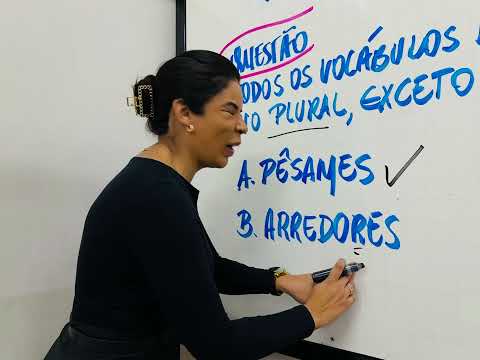 QUESTÃO
TODOS OS VOCÁBULOS
NO PLURAL, EXCETO
A. PÊSAMES ✓
B. ARREDORES